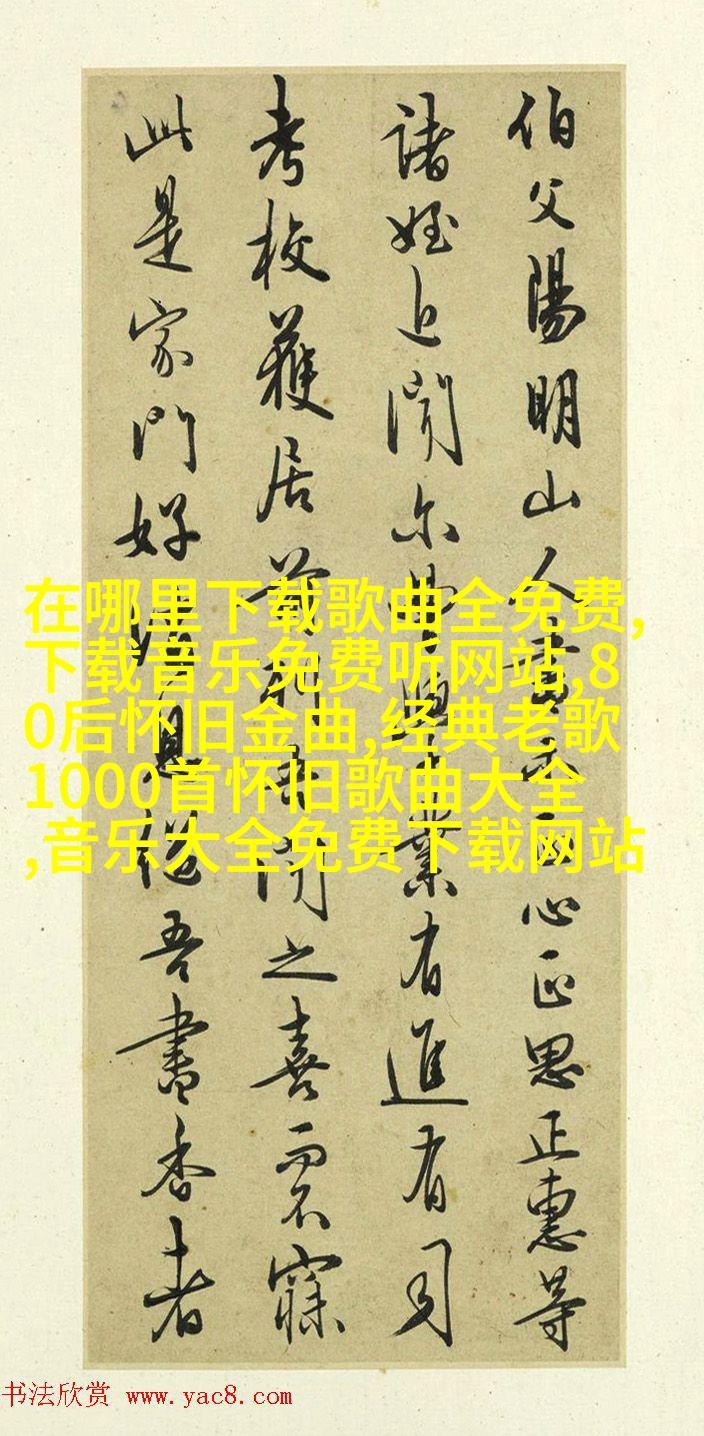 伯父陽明山人書示正心正思正惠等
諸姪近聞尔曹學業有進有司
考校獲居前列吾聞之喜而不寐
此是家門好消息繼吾書香者
在哪里下载歌曲全免费,
下载音乐免费听网站,8
0后怀旧金曲,经典老歌
1000首怀旧歌曲大全
,音乐大全免费下载网站
书法欣赏 www.yac8.com